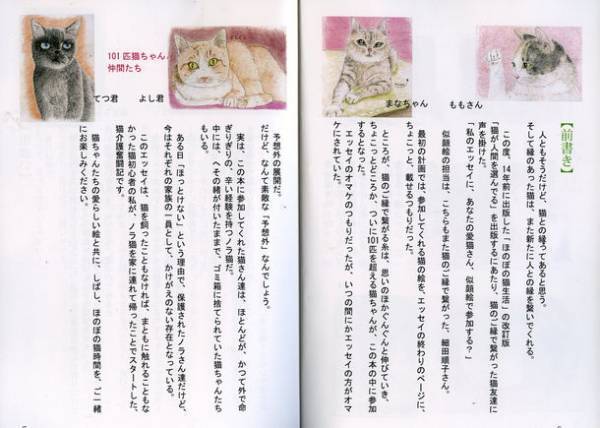 ももさん
まなちゃん
【前書き】
人ともそうだけど、猫との縁ってあると思う。
そして縁のあった猫は、また新たに人との縁を繋いでくれる。
この度、14年前に出版した「ほのぼの猫生活」の改訂版
「猫が人間を選んでる」を出版するにあたり、猫のご縁で繋がった猫友達に
声を掛けた。
「私のエッセイに、あなたの愛猫さん、似顔絵で参加する？」
似顔絵の担当は、こちらもまた猫のご縁で繋がった、細田順子さん。
最初の計画では、参加してくれる猫の絵を、エッセイの終わりのページに、
ちょこっと、載せるつもりだった。
ところが、猫のご縁で繋がる糸は、思いのほかぐんぐんと伸びていき、
ちょこっとどころか、ついに101匹を超える猫ちゃんが、この本の中に参加
するとなった。
エッセイのオマケのつもりだったが、いつの間にかエッセイの方がオマ
ケにされていた。
101匹猫ちゃん、
仲間たち
よし君
てつ君
予想外の展開だ。
だけど、なんて素敵な「予想外」なんでしょう。
実は、この本に参加してくれた猫さん達は、ほとんどが、かつて外で命
ぎりぎりの、辛い経験を持つノラ猫だ。
中には、へその緒が付いたままで、ゴミ箱に捨てられていた猫ちゃんたち
もいる。
ある日「ほっとけない」という理由で、保護されたノラさん達だけど、
今はそれぞれの家族の一員として、かけがえのない存在となっている。
このエッセイは、猫を飼ったこともなければ、まともに触れることもな
かった猫初心者の私が、ノラ猫を家に連れて帰ったことでスタートした、
猫介護奮闘記です。
猫ちゃんたちの愛らしい絵と共に、しばし、ほのぼの猫時間を、ご一緒
にお楽しみください。